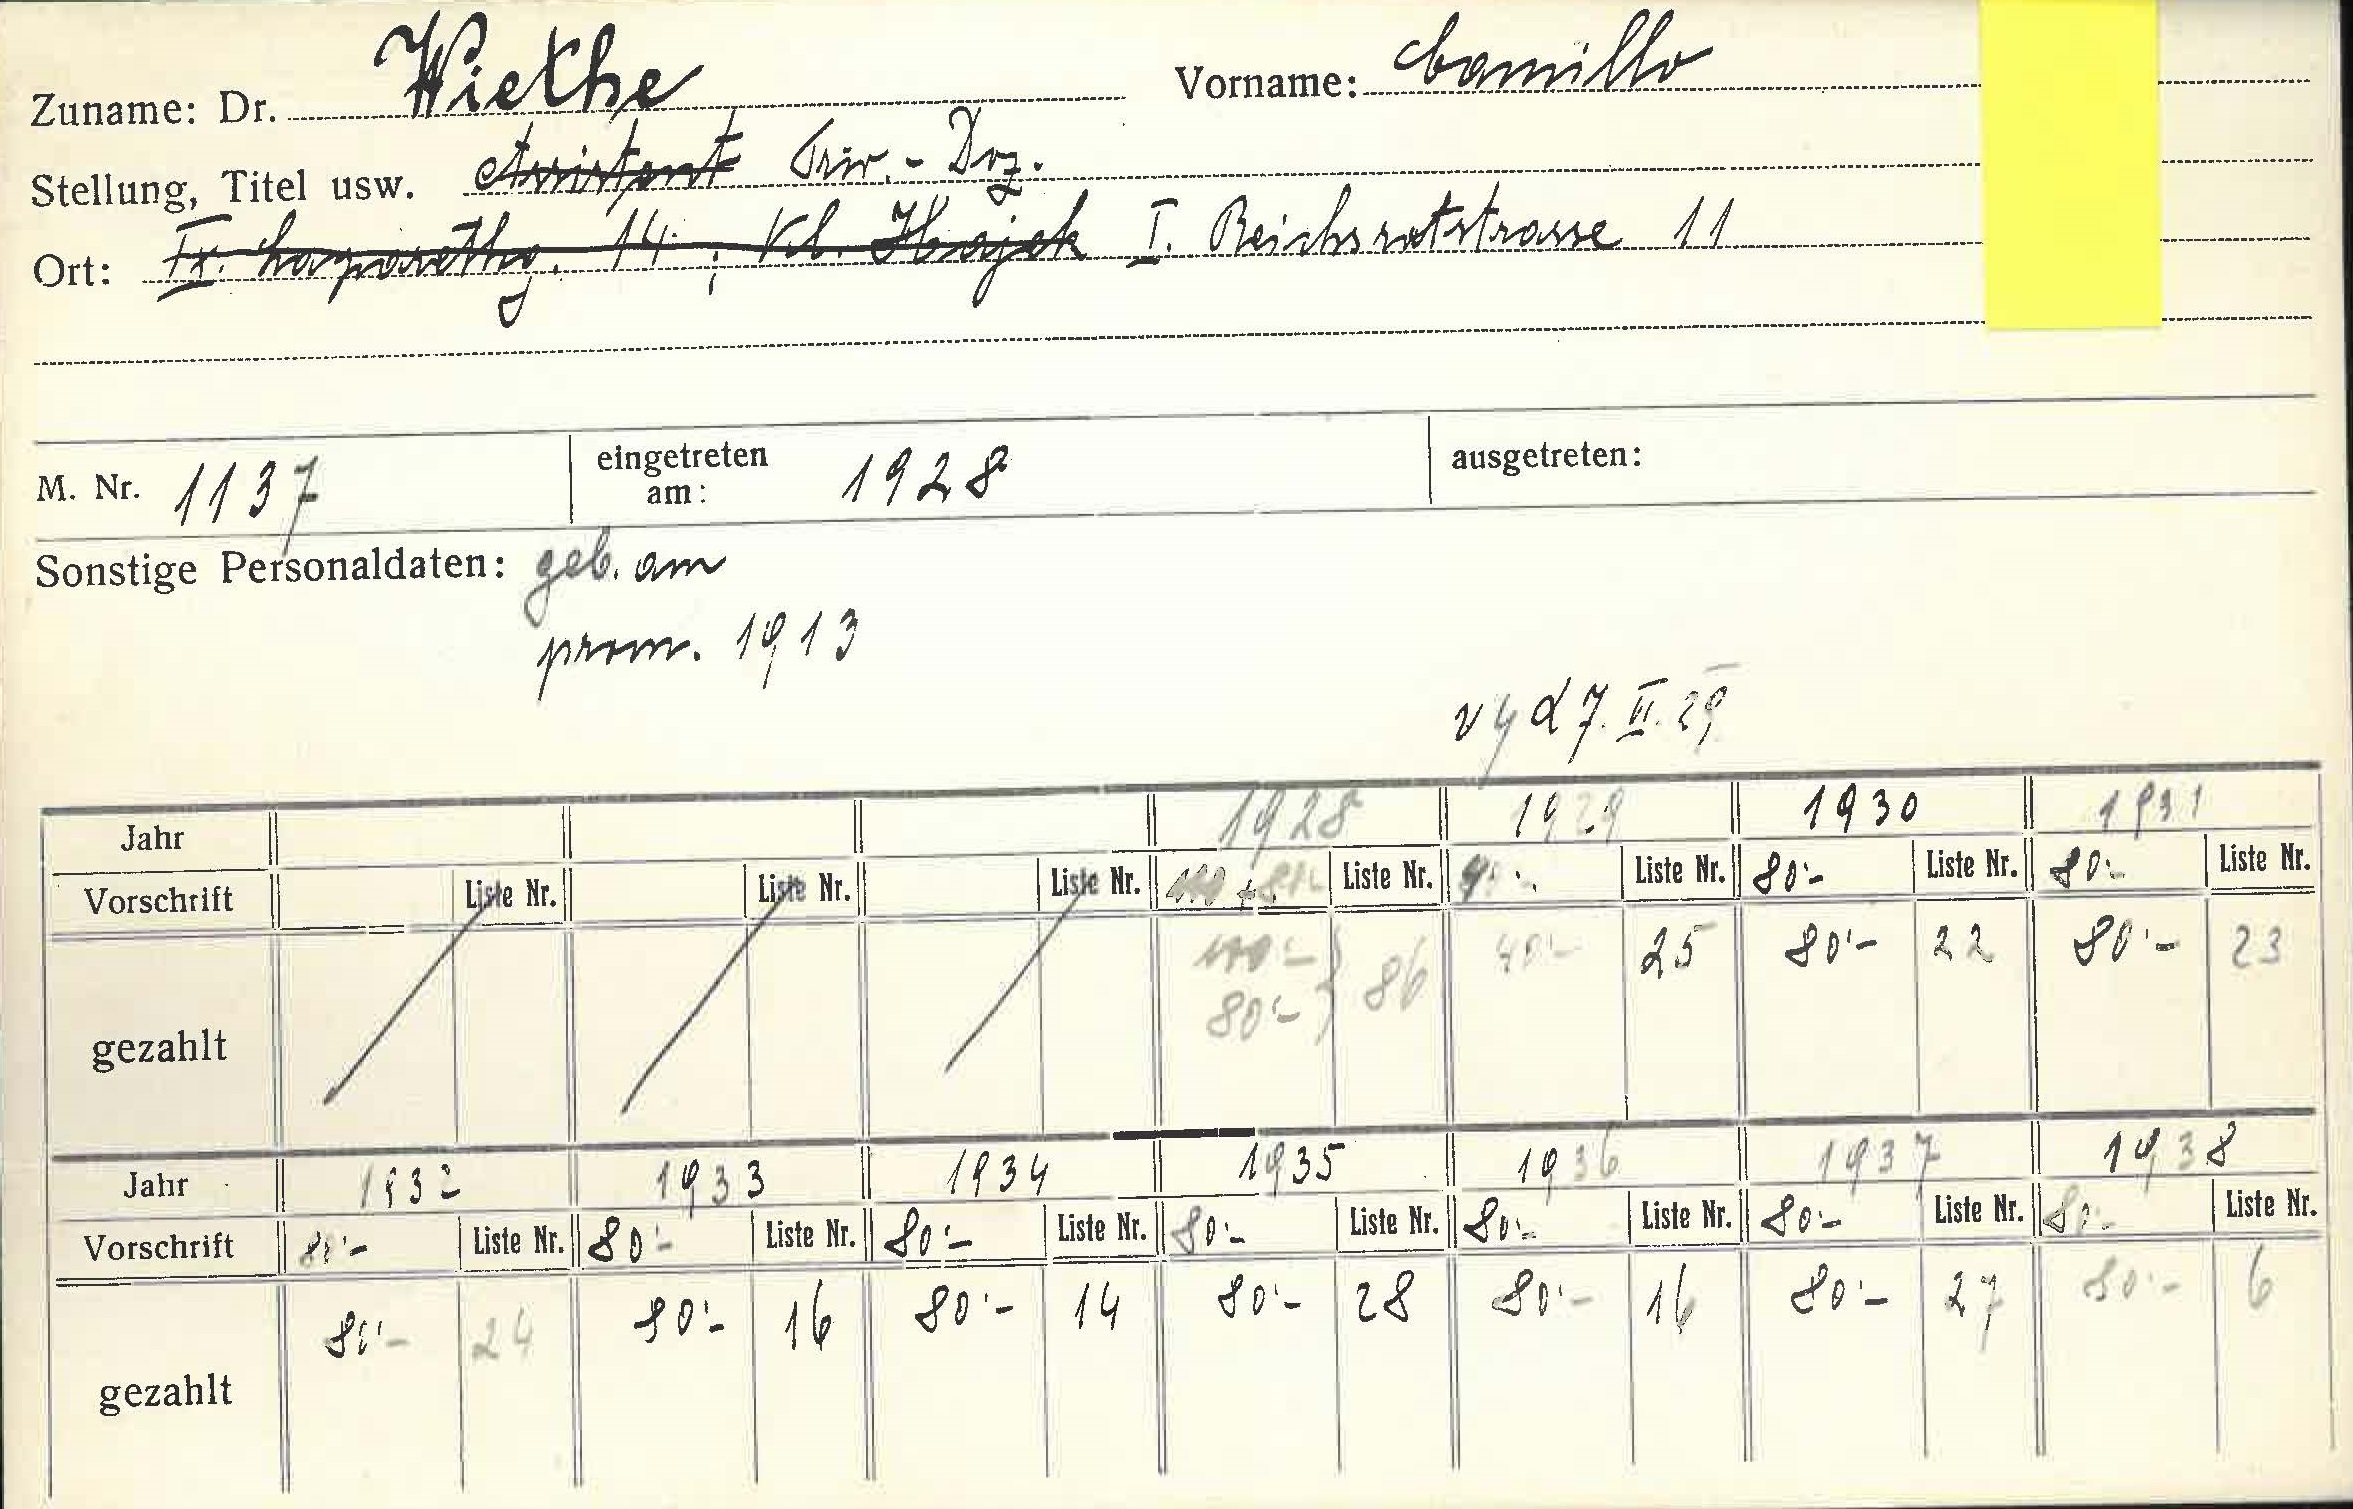 Zuname: Dr. Wiethe Vorname: Camillo
Stellung, Titel usw. Assistent Priv.-Doz.
Ort: IX. Lazarettg. 14; Kl. Hajek I. Reichsratstrasse 11
M. Nr. 1137 eingetreten am: 1928 ausgetreten:
Sonstige Personaldaten: geb. am
prom. 1913
7. VI. 29
Jahr 1928 1929 1930 1931
Vorschrift Liste Nr. Liste Nr. Liste Nr. Liste Nr. Liste Nr. 80'- Liste Nr. 80'- Liste Nr.
gezahlt 80'- 86 40'- 25 80'- 22 80'- 23
Jahr 1932 1933 1934 1935 1936 1937 1938
Vorschrift 80'- Liste Nr. 80'- Liste Nr. 80'- Liste Nr. 80'- Liste Nr. 80'- Liste Nr. 80'- Liste Nr. 80'- Liste Nr.
gezahlt 80'- 24 80'- 16 80'- 14 80'- 28 80'- 16 80'- 27 80'- 6